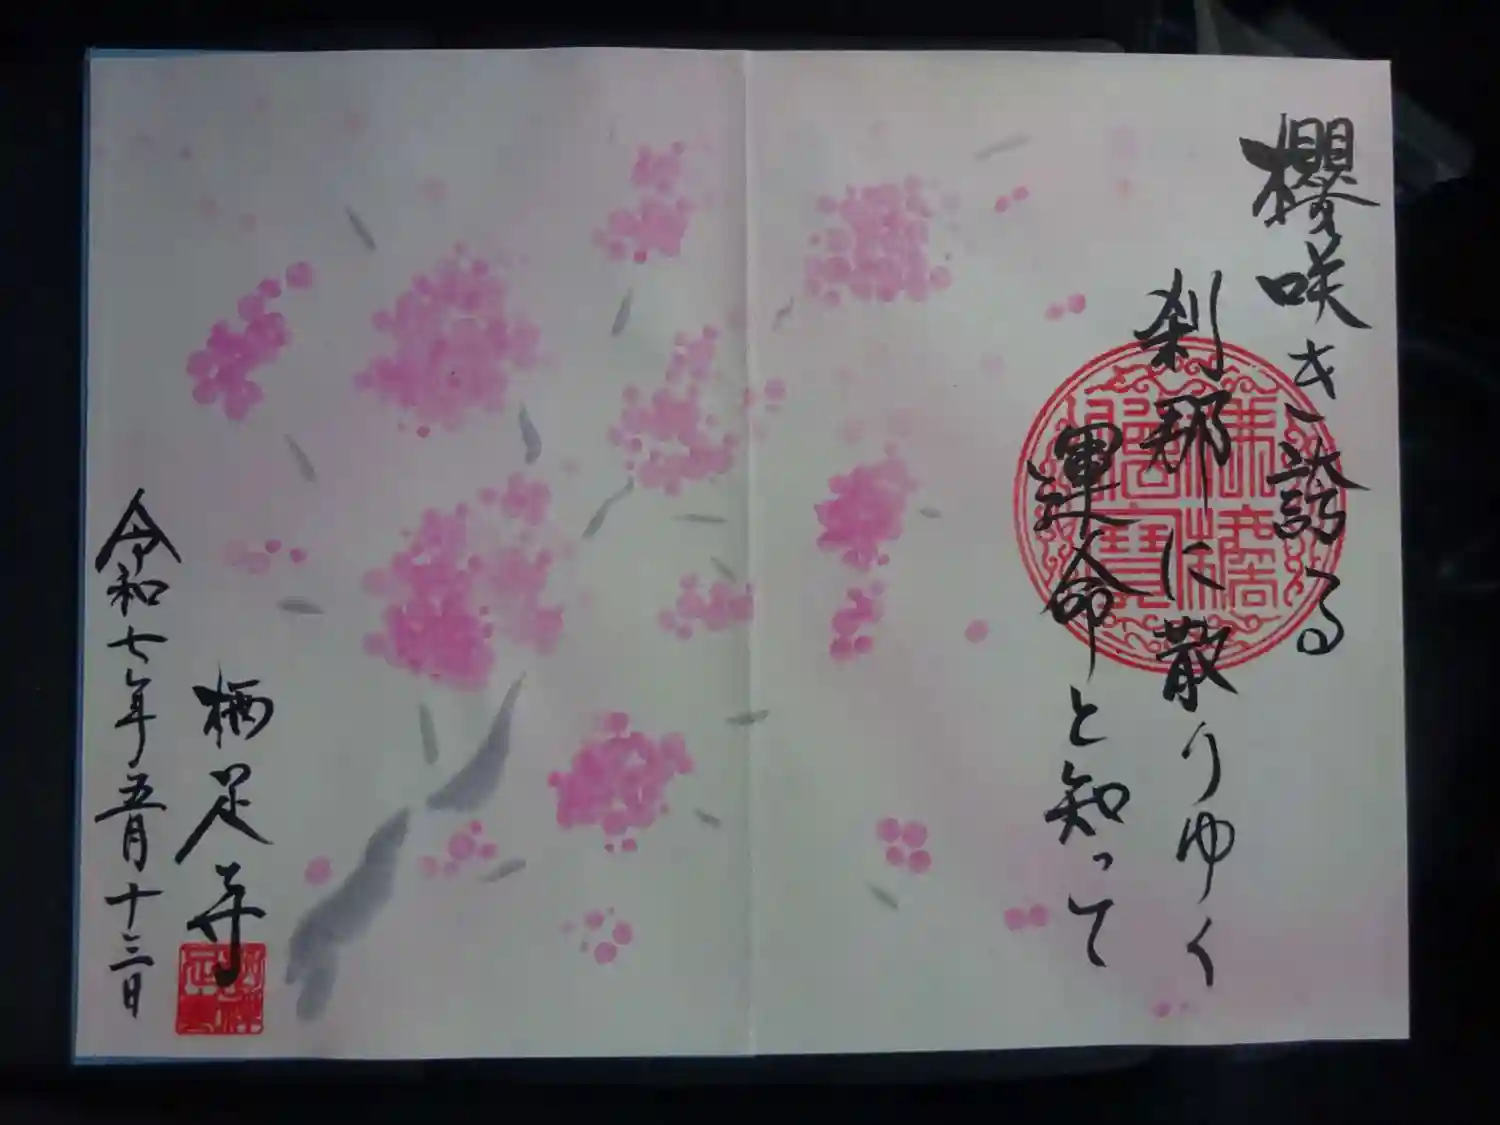 櫻咲き誇る
刹那に散りゆく
運命と知って
栖足寺
令和七年五月十三日